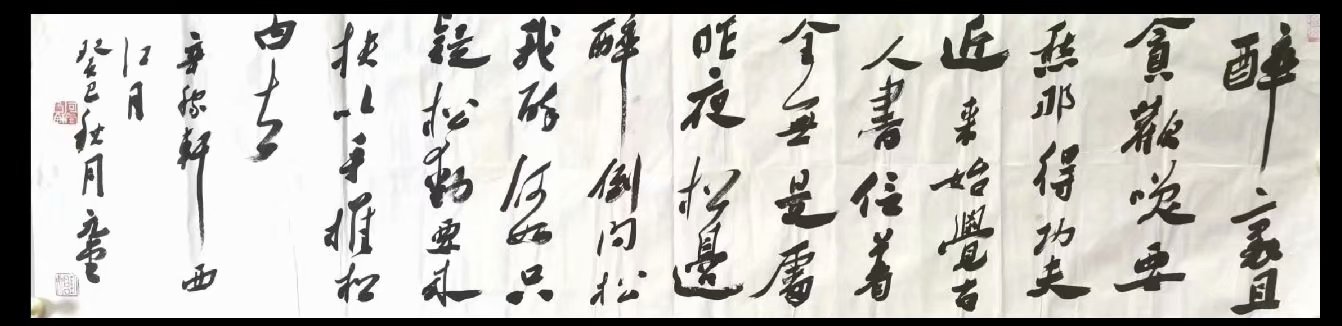 醉裏且
貪歡咲要
愁那得功夫
近來始覺古
人書信着
全無是處
昨夜松邊
醉倒問松
我醉何如只
疑松動要來
扶以手推松
曰去
辛稼軒西
江月
癸巳秋月